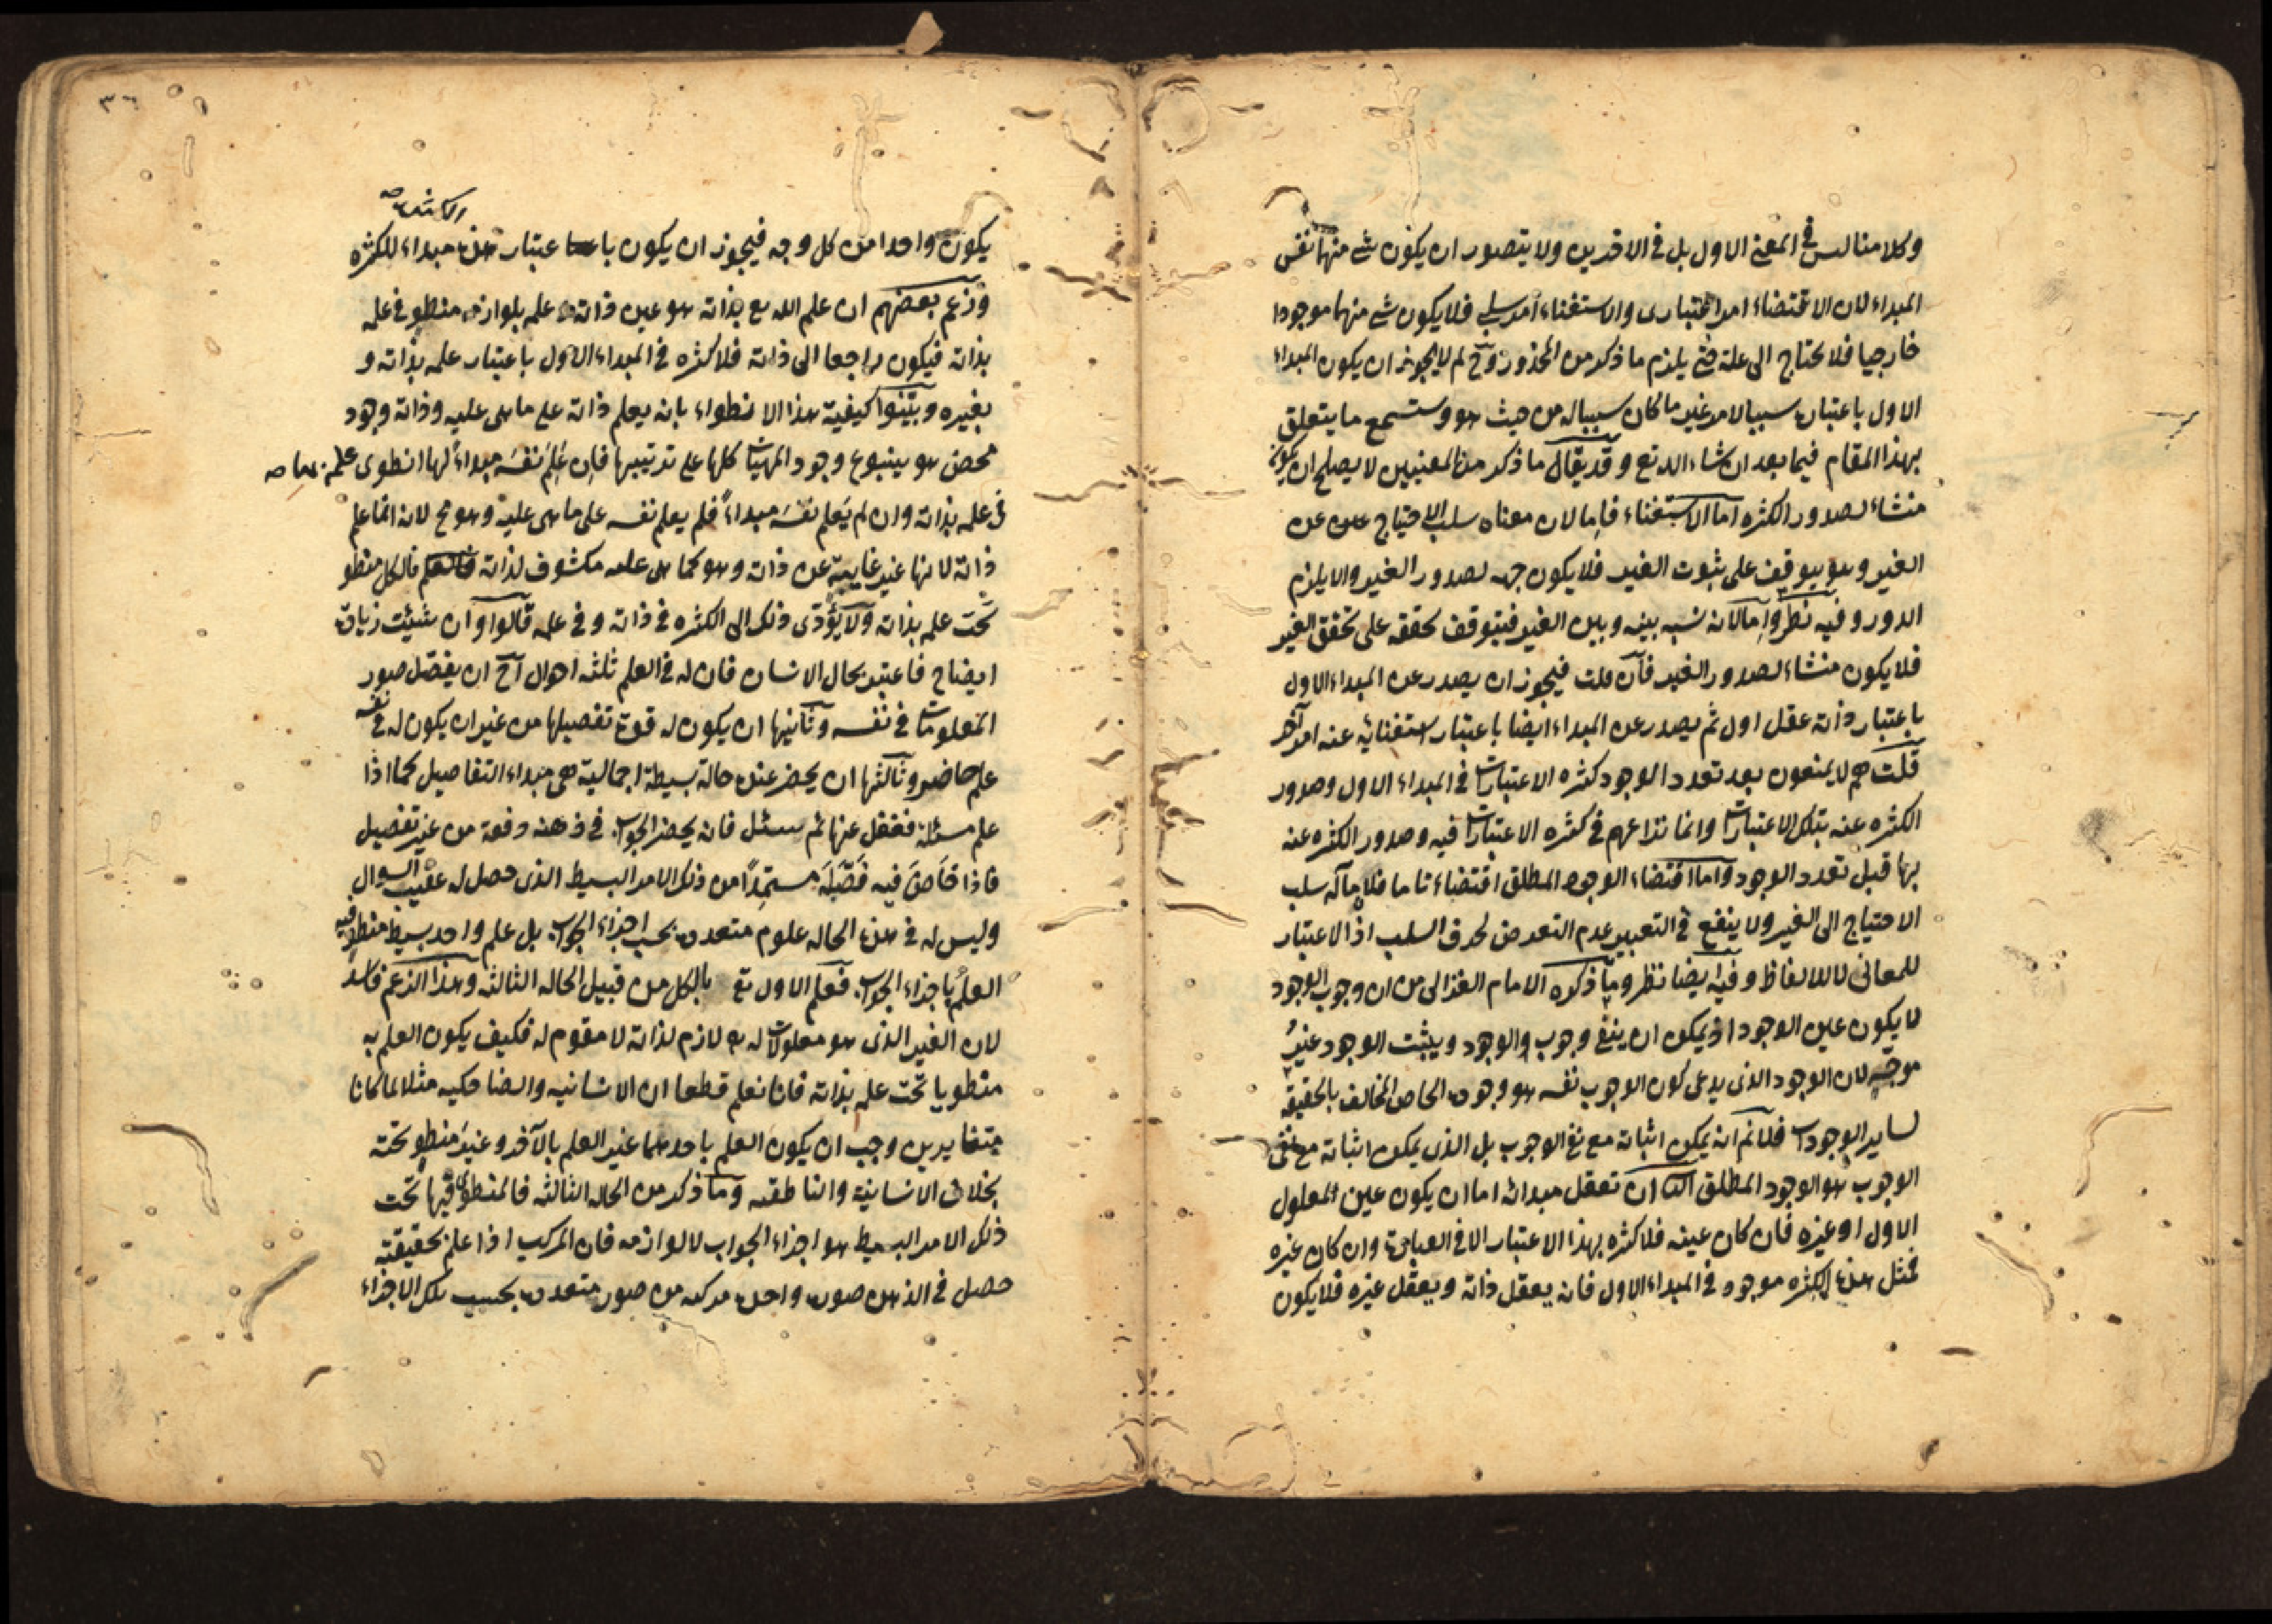 وكلامنا ليس في المعنى الاول بل في الاخرين ولا يتصور ان يكون شئ منهما نفس
المبداء لان الاقتضاء امر اعتبارى والاستغناء امر سلبي فلا يكون شئ منهما موجودا
خارجيا فلا يحتاج الى علة حتى يلزم ما ذكر من المحذور وح لم لا يجوز ان يكون المبداء
الاول باعتباره سببا لامر غير ما كان سببا له من حيث هو وستسمع ما يتعلق
بهذا المقام فيما بعد ان شاء الله تع وقد يقال ما ذكر من المعنيين لا يصلح ان يكون
منشاء لصدور الكثره اما الاستغناء فاما لان معناه سلب الاحتياج عن
الغير وهو يتوقف على ثبوت الغير فلا يكون جهه لصدور الغير والا يلزم
الدور وفيه نظر واما لانه نسبه بينه وبين الغير فيتوقف تحققه على تحقق الغير
فلا يكون منشاء لصدور الغير فان قلت فيجوز ان يصدر عن المبداء الاول
باعتبار ذاته عقل اول ثم يصدر عن المبداء ايضا باعتبار استغنائه عنه امر آخر
قلت هم لا يمنعون بعد تعدد الوجود كثره الاعتبارات في المبداء الاول وصدور
الكثره عنه بتلك الاعتبارات وانما نزاعهم في كثره الاعتبارات فيه وصدور الكثره عنه
بها قبل تعدد الوجود واما اقتضاء الوجود المطلق اقتضاء تاما فلان مآله سلب
الاحتياج الى الغير ولا ينفع في التعبير عدم التعرض لحرف السلب اذ الاعتبار
للمعاني لا للالفاظ وفيه ايضا نظر وما ذكره الامام الغزالى من ان وجوب الوجود
لا يكون عين الوجود اذ يمكن ان ينفى وجوب الوجود ويثبت الوجود غير
موجه لان الوجود الذى يدعى كون الوجوب نفسه هو وجوده الخاص المخالف بالحقيقه
لساير الوجودات فلانم انه يمكن اثباته مع نفى الوجوب بل الذى يمكن اثباته مع نفى
الوجوب هو الوجود المطلق الثالث ان تعقل مبدائه اما ان يكون عين المعلول
الاول او غيره فان كان عينه فلا كثره بهذا الاعتبار الا في العباره وان كان غيره
فمثل هذه الكثره موجود في المبداء الاول فانه يعقل ذاته ويعقل غيره فلا يكون
٣٦
يكون واحدا من كل وجه فيجوز ان يكون باعتبار هذه الكثره مبداء للكثره
وزعم بعضهم ان علم الله تع بذاته هو عين ذاته علمه بلوازمه منطو في علمه
بذاته فيكون راجعا الى ذاته فلا كثره في المبداء الاول باعتبار علمه بذاته و
بغيره وبينوا كيفية هذا الانطواء بانه يعلم ذاته على ما هى عليه وذاته وجود
محض هو ينبوع وجود المهيات كلها على ترتيبها فان علم نفسه مبداء لها انطوى علمه بها
في علمه بذاته وان لم يعلم نفسه مبداء فلم يعلم نفسه على ما هى عليه وهو مح لانه انما علم
ذاته لانها غير غايبة عن ذاته وهو كما هى عليه مكشوف لذاته فالكل منطو
تحت علمه بذاته ولا يؤدى ذلك الى الكثره في ذاته وفي علمه قالوا وان شئت زيادة
ايضاح فاعتبر بحال الانسان فان له في العلم ثلثه احوال آح ان يفصل صور
المعلومات في نفسه وثانيها ان يكون له قوة تفصيلها من غير ان يكون له في نفسه
علم حاضر وثالثها ان يحضر عنده حالة بسيطة اجمالية هى مبداء التفاصيل كما اذا
علم مسئلة فغفل عنها ثم سئل فانه يحضر الجواب في ذهنه دفعة من غير تفصيل
فاذا خاض فيه فصله مستمدا من ذلك الامر البسيط الذى حصل له عقيب السوال
وليس له في هذه الحاله علوم متعدده بحسب اجزاء الجواب بل علم واحد بسيط منطو فيه
العلم باجزاء الجواب فعلم الاول تع بالكل من قبيل الحاله الثالثه وهذا الزعم فاسد
لان الغير الذى هو معلولات له لازم لذاته لا مقوم له فكيف يكون العلم به
منطويا تحت علمه بذاته فانا نعلم قطعا ان الانسانيه والضاحكيه مثلا لما كانا
متغايرين وجب ان يكون العلم باحدهما غير العلم بالآخر وغير منطو تحته
بخلاف الانسانية والناطقيه وما ذكر من الحاله الثالثه فالمنطوى فيها تحت
ذلك الامر البسيط هو اجزاء الجواب لا لوازمه فان المركب اذا علم بحقيقته
حصل في الذهن صورة واحدة مركبه من صور متعدده بحسب تلك الاجزاء